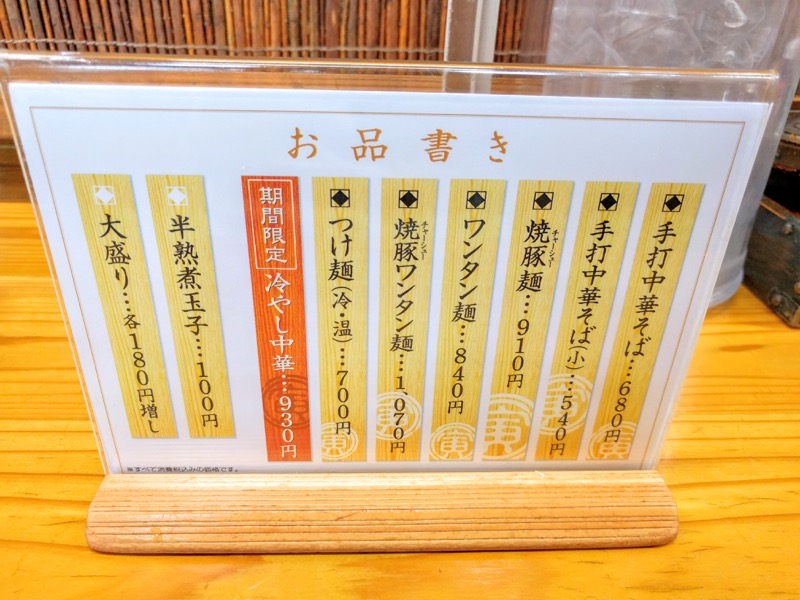 お品書き
手打中華そば…680円
手打中華そば(小)…540円
チャーシュー
焼豚麺…910円
ワンタン麺…840円
チャーシュー
焼豚ワンタン麺…1,070円
つけ麺(冷・温)…700円
期間限定 冷やし中華…930円
半熟煮玉子…100円
大盛り…各180円増し
※すべて消費税込みの価格です。
寅
寅
寅
寅
寅
寅